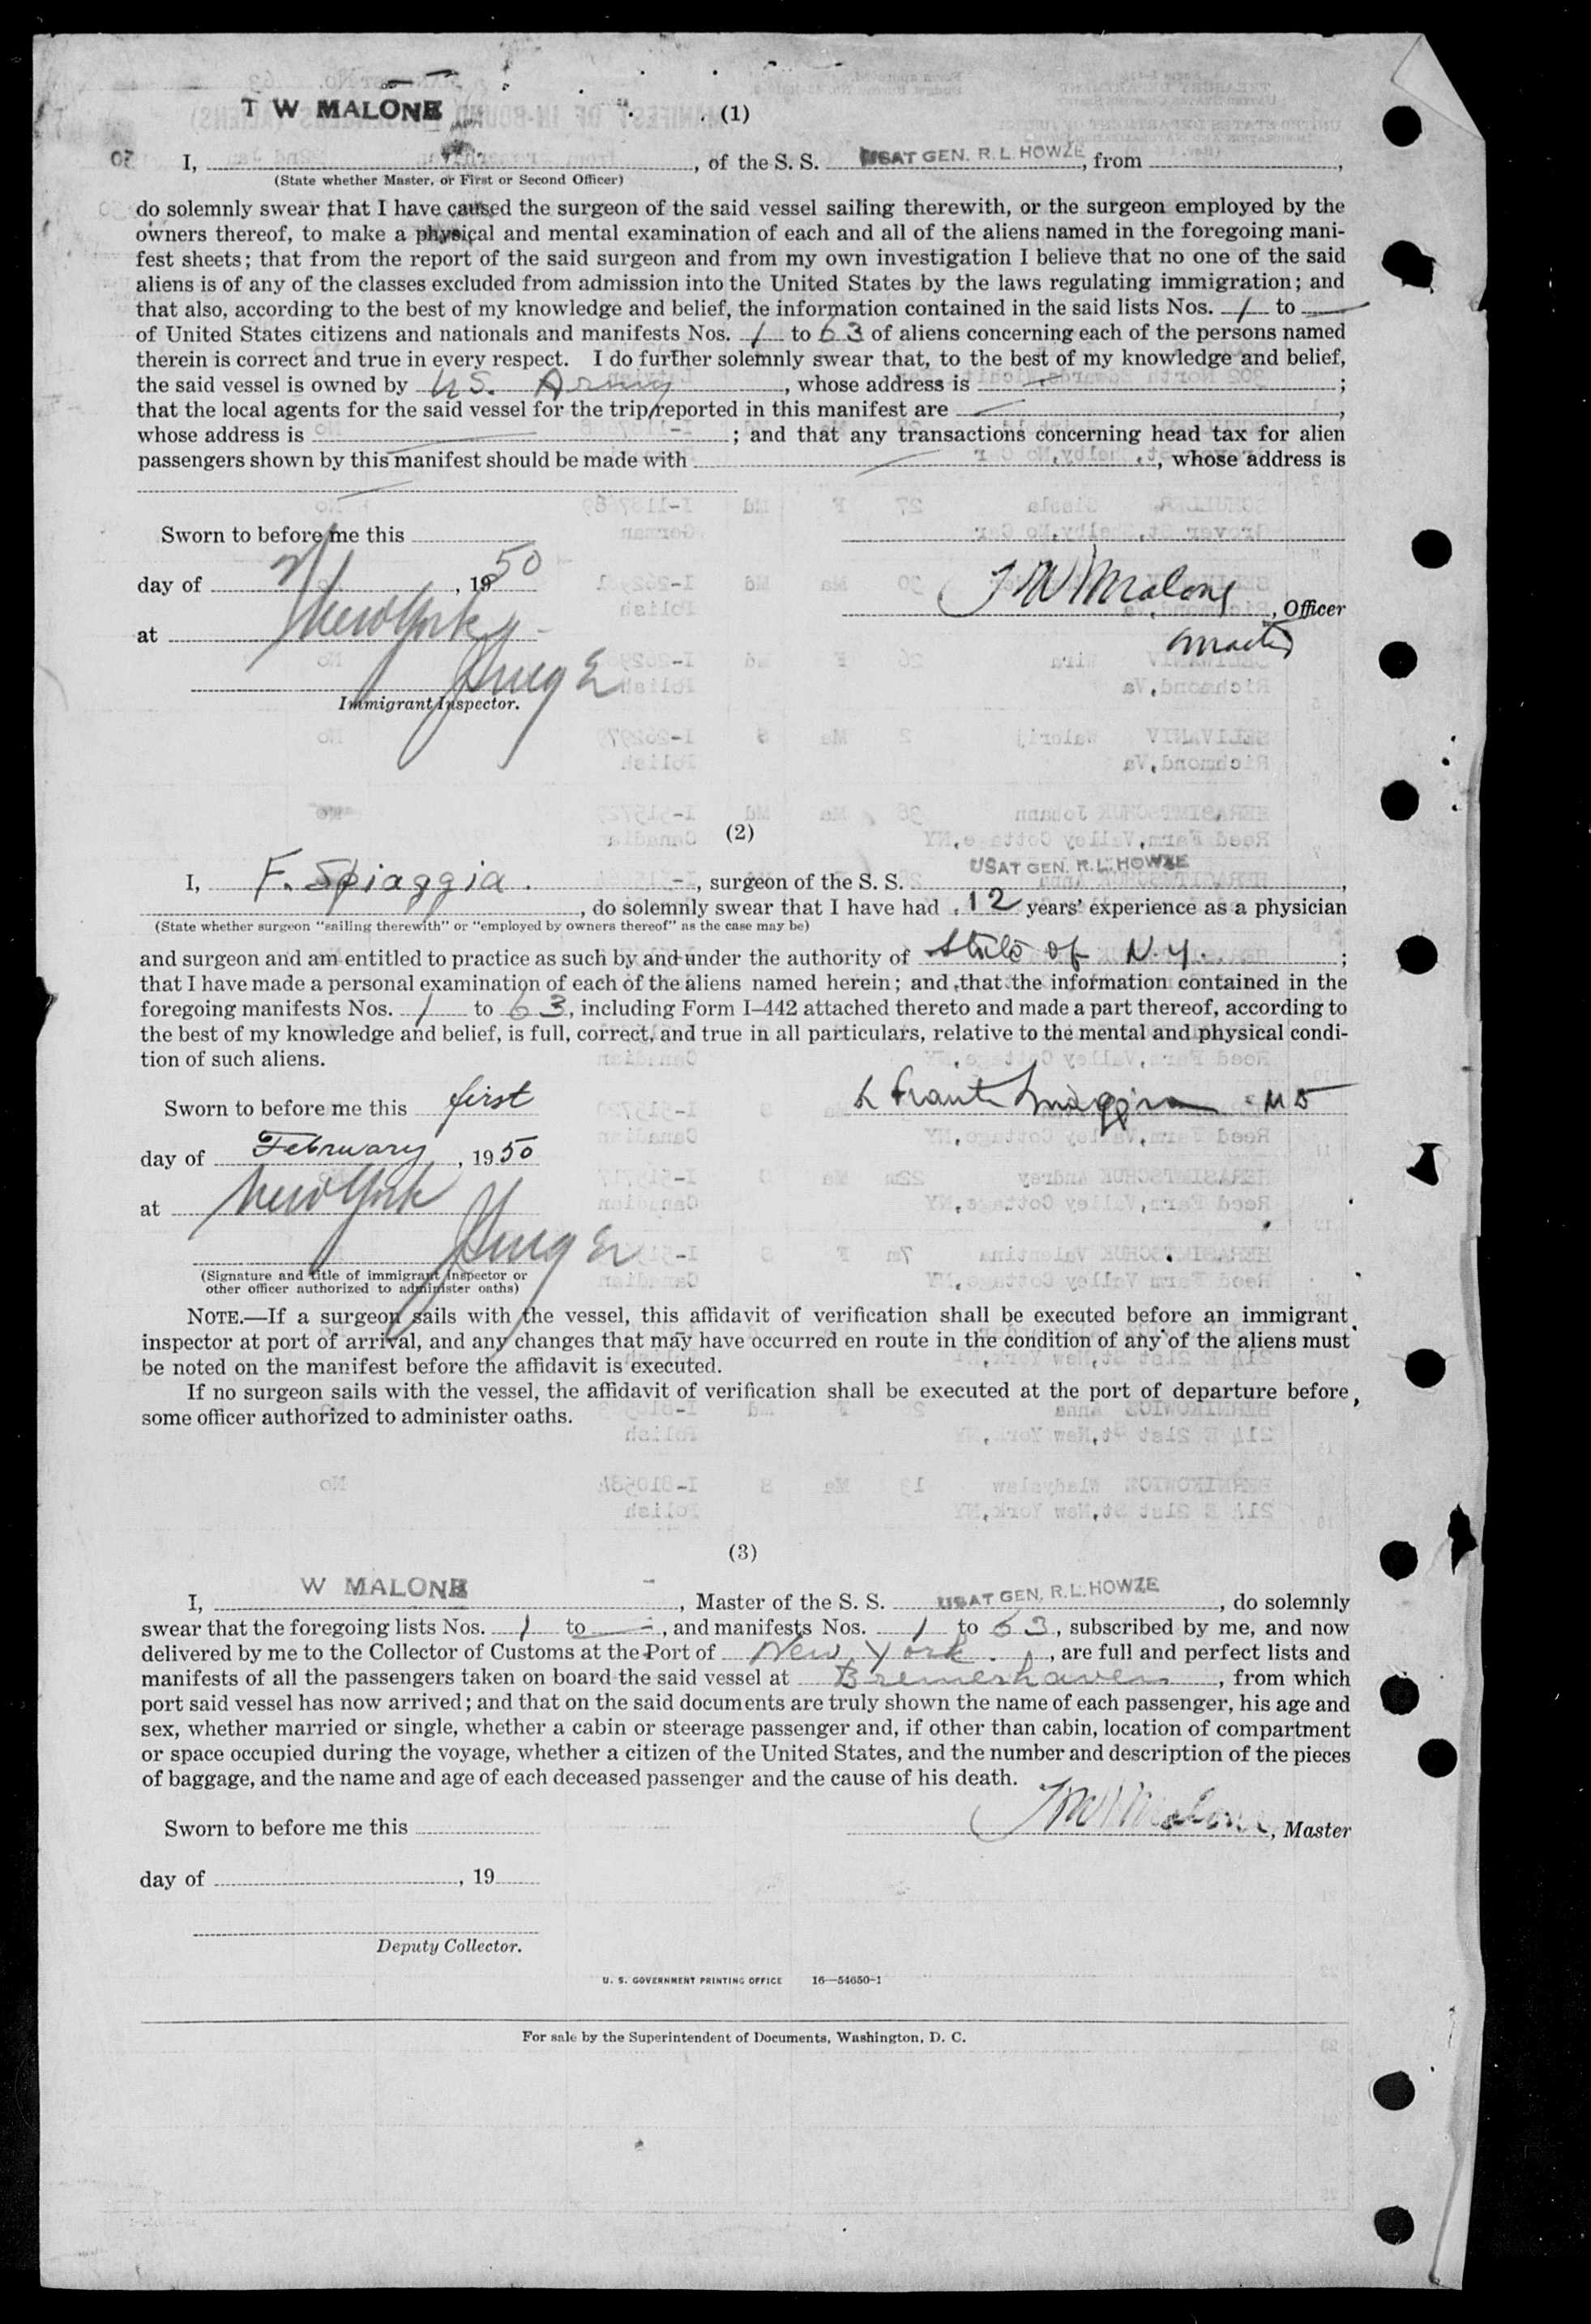 T W MALONE
(1)
I, ........, of the S. S. USAT GEN. R. L. HOWZE, from ........,
(State whether Master, or First or Second Officer)
do solemnly swear that I have caused the surgeon of the said vessel sailing therewith, or the surgeon employed by the
owners thereof, to make a physical and mental examination of each and all of the aliens named in the foregoing mani-
fest sheets; that from the report of the said surgeon and from my own investigation I believe that no one of the said
aliens is of any of the classes excluded from admission into the United States by the laws regulating immigration; and
that also, according to the best of my knowledge and belief, the information contained in the said lists Nos. 1 to —
of United States citizens and nationals and manifests Nos. 1 to 63 of aliens concerning each of the persons named
therein is correct and true in every respect. I do further solemnly swear that, to the best of my knowledge and belief,
the said vessel is owned by U.S. Army, whose address is —;
that the local agents for the said vessel for the trip reported in this manifest are —,
whose address is —; and that any transactions concerning head tax for alien
passengers shown by this manifest should be made with —, whose address is
—
Sworn to before me this ........
day of 2/1, 1950
T W Malone, Officer
Master
at New York
Immigrant Inspector.
(2)
I, F. Spiaggia. -, surgeon of the S. S. USAT GEN. R. L. HOWZE,
........, do solemnly swear that I have had 12 years' experience as a physician
(State whether surgeon "sailing therewith" or "employed by owners thereof" as the case may be)
and surgeon and am entitled to practice as such by and under the authority of State of N.Y.;
that I have made a personal examination of each of the aliens named herein; and that the information contained in the
foregoing manifests Nos. 1 to 63, including Form I–442 attached thereto and made a part thereof, according to
the best of my knowledge and belief, is full, correct, and true in all particulars, relative to the mental and physical condi-
tion of such aliens.
Sworn to before me this first
MD
day of February, 1950
at New York
(Signature and title of immigrant inspector or
other officer authorized to administer oaths)
NOTE.—If a surgeon sails with the vessel, this affidavit of verification shall be executed before an immigrant
inspector at port of arrival, and any changes that may have occurred en route in the condition of any of the aliens must
be noted on the manifest before the affidavit is executed.
If no surgeon sails with the vessel, the affidavit of verification shall be executed at the port of departure before
some officer authorized to administer oaths.
(3)
I, W MALONE -, Master of the S. S. USAT GEN. R. L. HOWZE, do solemnly
swear that the foregoing lists Nos. 1 to —, and manifests Nos. 1 to 63, subscribed by me, and now
delivered by me to the Collector of Customs at the Port of New York., are full and perfect lists and
manifests of all the passengers taken on board the said vessel at Bremerhaven, from which
port said vessel has now arrived; and that on the said documents are truly shown the name of each passenger, his age and
sex, whether married or single, whether a cabin or steerage passenger and, if other than cabin, location of compartment
or space occupied during the voyage, whether a citizen of the United States, and the number and description of the pieces
of baggage, and the name and age of each deceased passenger and the cause of his death.
Sworn to before me this ........
T W Malone, Master
day of ........, 19....
Deputy Collector.
U. S. GOVERNMENT PRINTING OFFICE 16—54650-1
For sale by the Superintendent of Documents, Washington, D. C.